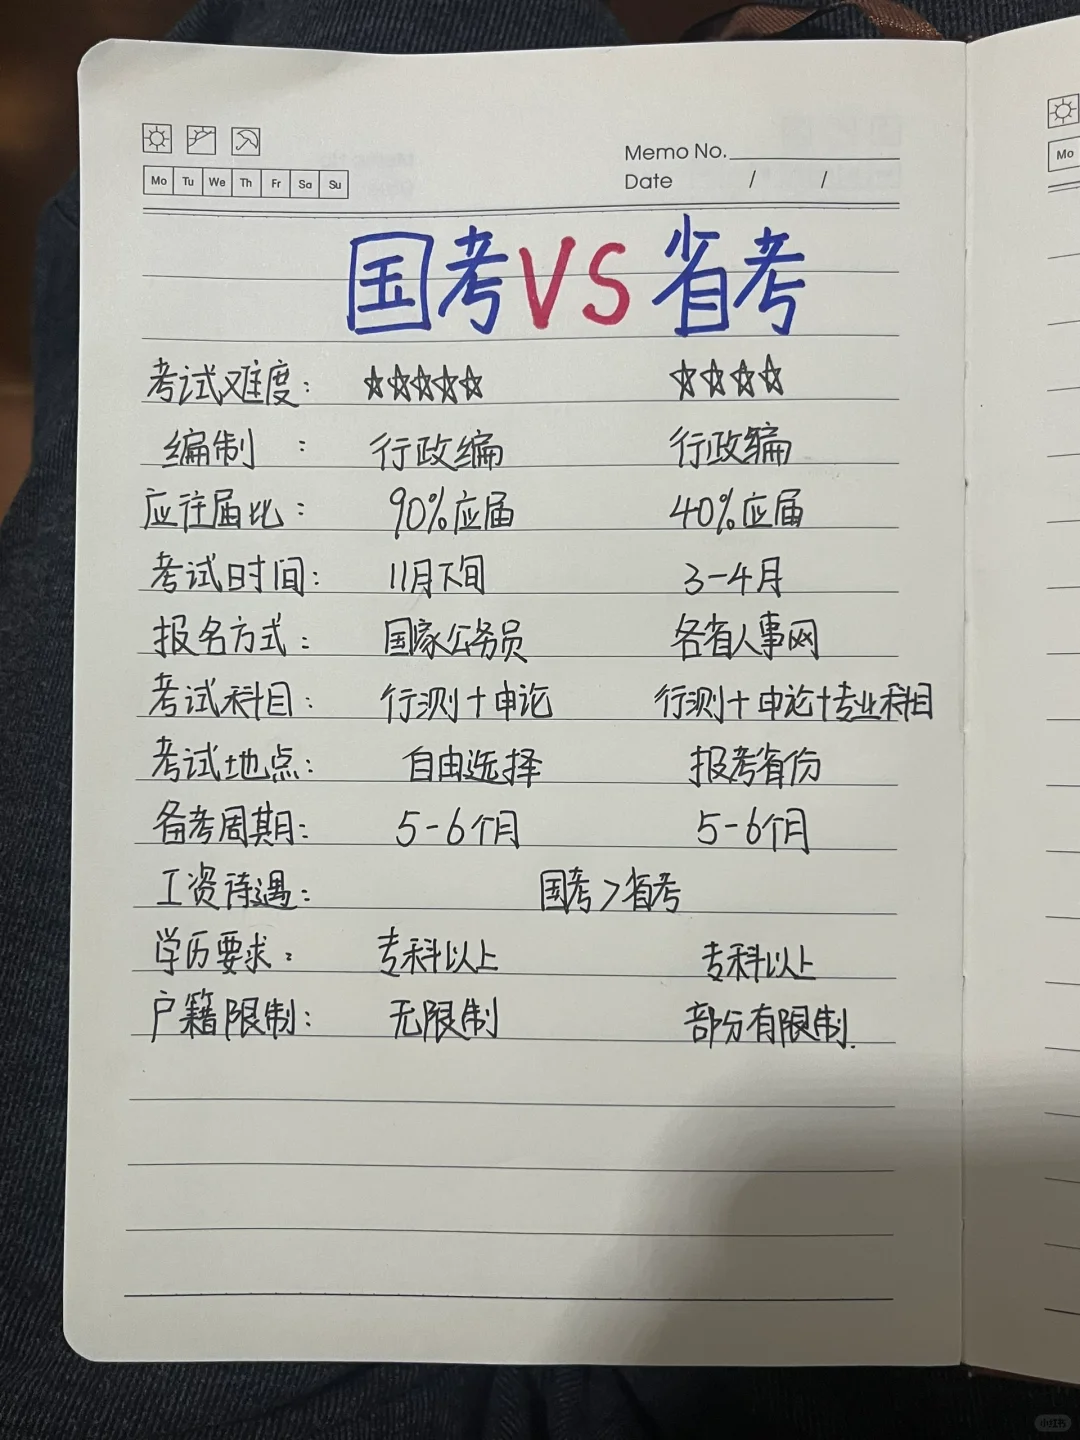 Memo No.
Mo Tu We Th Fr Sa Su
Date / /
Mo
国考VS省考
考试难度: ☆☆☆☆☆ ☆☆☆☆
编制: 行政编 行政编
应往届比: 90%应届 40%应届
考试时间: 11月下旬 3-4月
报名方式: 国家公务员 各省人事网
考试科目: 行测+申论 行测+申论+专业科目
考试地点: 自由选择 报考省份
备考周期: 5-6个月 5-6个月
工资待遇: 国考>省考
学历要求: 专科以上 专科以上
户籍限制: 无限制 部分有限制.
小红书